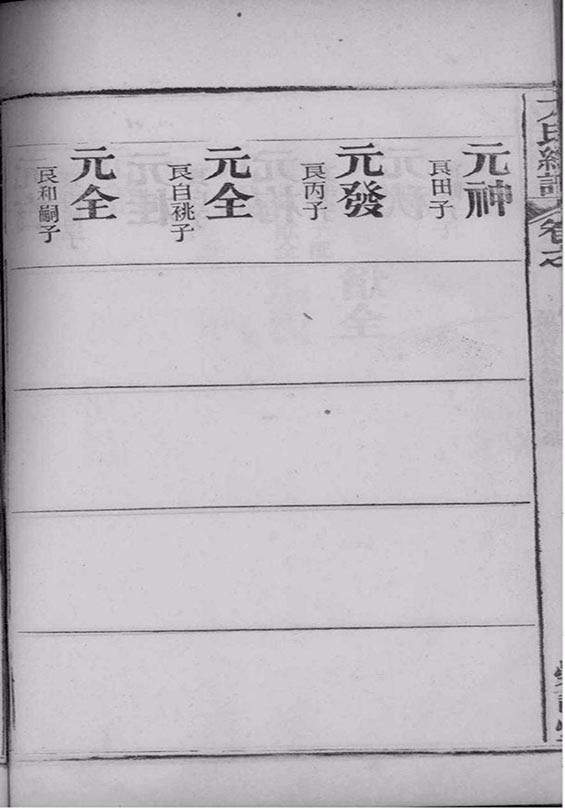 氏總譜
卷之
元神
良田子
元發
良丙子
元全
良自祧子
元全
良和嗣子